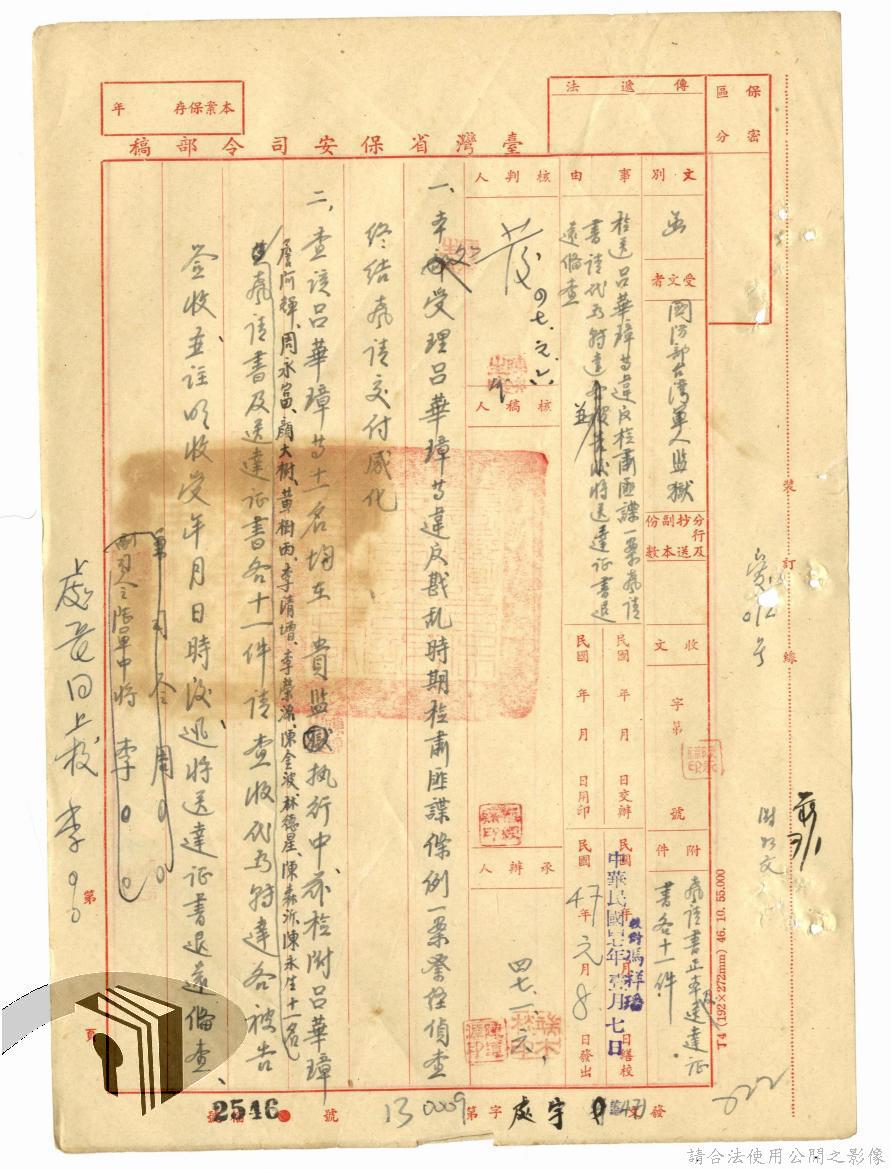 保密區分
傳遞法
本案保存　年
臺灣省保安司令部稿
文別
函
受文者
國防部台灣軍人監獄
分行及抄送副本份數
收文　字第　號
附件
聲請書正本送達證
書各十一件
事由
檢送呂華璋等違反檢肅匪諜一案聲請
書請代為轉達
並將送達證書退
還備查
民國　年　月　日交辦
民國　年　月　日用印
校對馮祥璠
民國　年　月　日繕校
中華民國四七年壹月七日
民國47年元月8日發出
核判人
四七、元、六
核稿人
承辦人
四七、一、六、
一、本
受理呂華璋等違反戡亂時期檢肅匪諜條例一案業經偵查
終結聲請交付感化
二、查該呂華璋等十一名均在　貴監獄執行中茲檢附呂華璋
詹阿輝、周永富、顏大樹、黃樹雨、李清增、李榮源、陳金波、林德星、陳森沂、陳永生十一名
聲請書及送達証書各十一件請查收代為轉達各被告
簽收並註明收受年月日時後迅將送達証書退還備查、
司令周○○
副司令張單中將　李○○
處長回上校李○○
裝訂線
第　頁
T4 (192×272mm) 46. 10. 55.000
發文(47)
處字
字第　0009　號
13
檔號
2546
022
請合法使用公開之影像